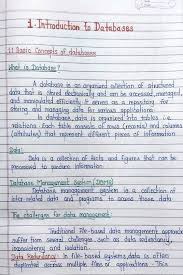 1. Introduction to Databases
1.1 Basic Concepts of databases
What is Database?
A database is an organized collection of structured
data that is stored electronically and can be accessed, managed,
and manipulated efficiently. It serves as a repository for
storing and managing data for various applications.
In database, data is organized into tables i.e.
relations. Each table consists of rows (records) and columns
(attributes) that represent different pieces of information.
Data:
Data is a collection of facts and figures that can be
processed to produce information.
Database Management System (DBMS)
Database management system is a collection of
inter related data and programs to access those data.
The challenges for data management:
Traditional file-based data management approach
suffer from several challenges such as data redundancy,
inconsistency and isolation.
Data Redundancy: In file-based systems, data is often
duplicated across multiple files or applications. This